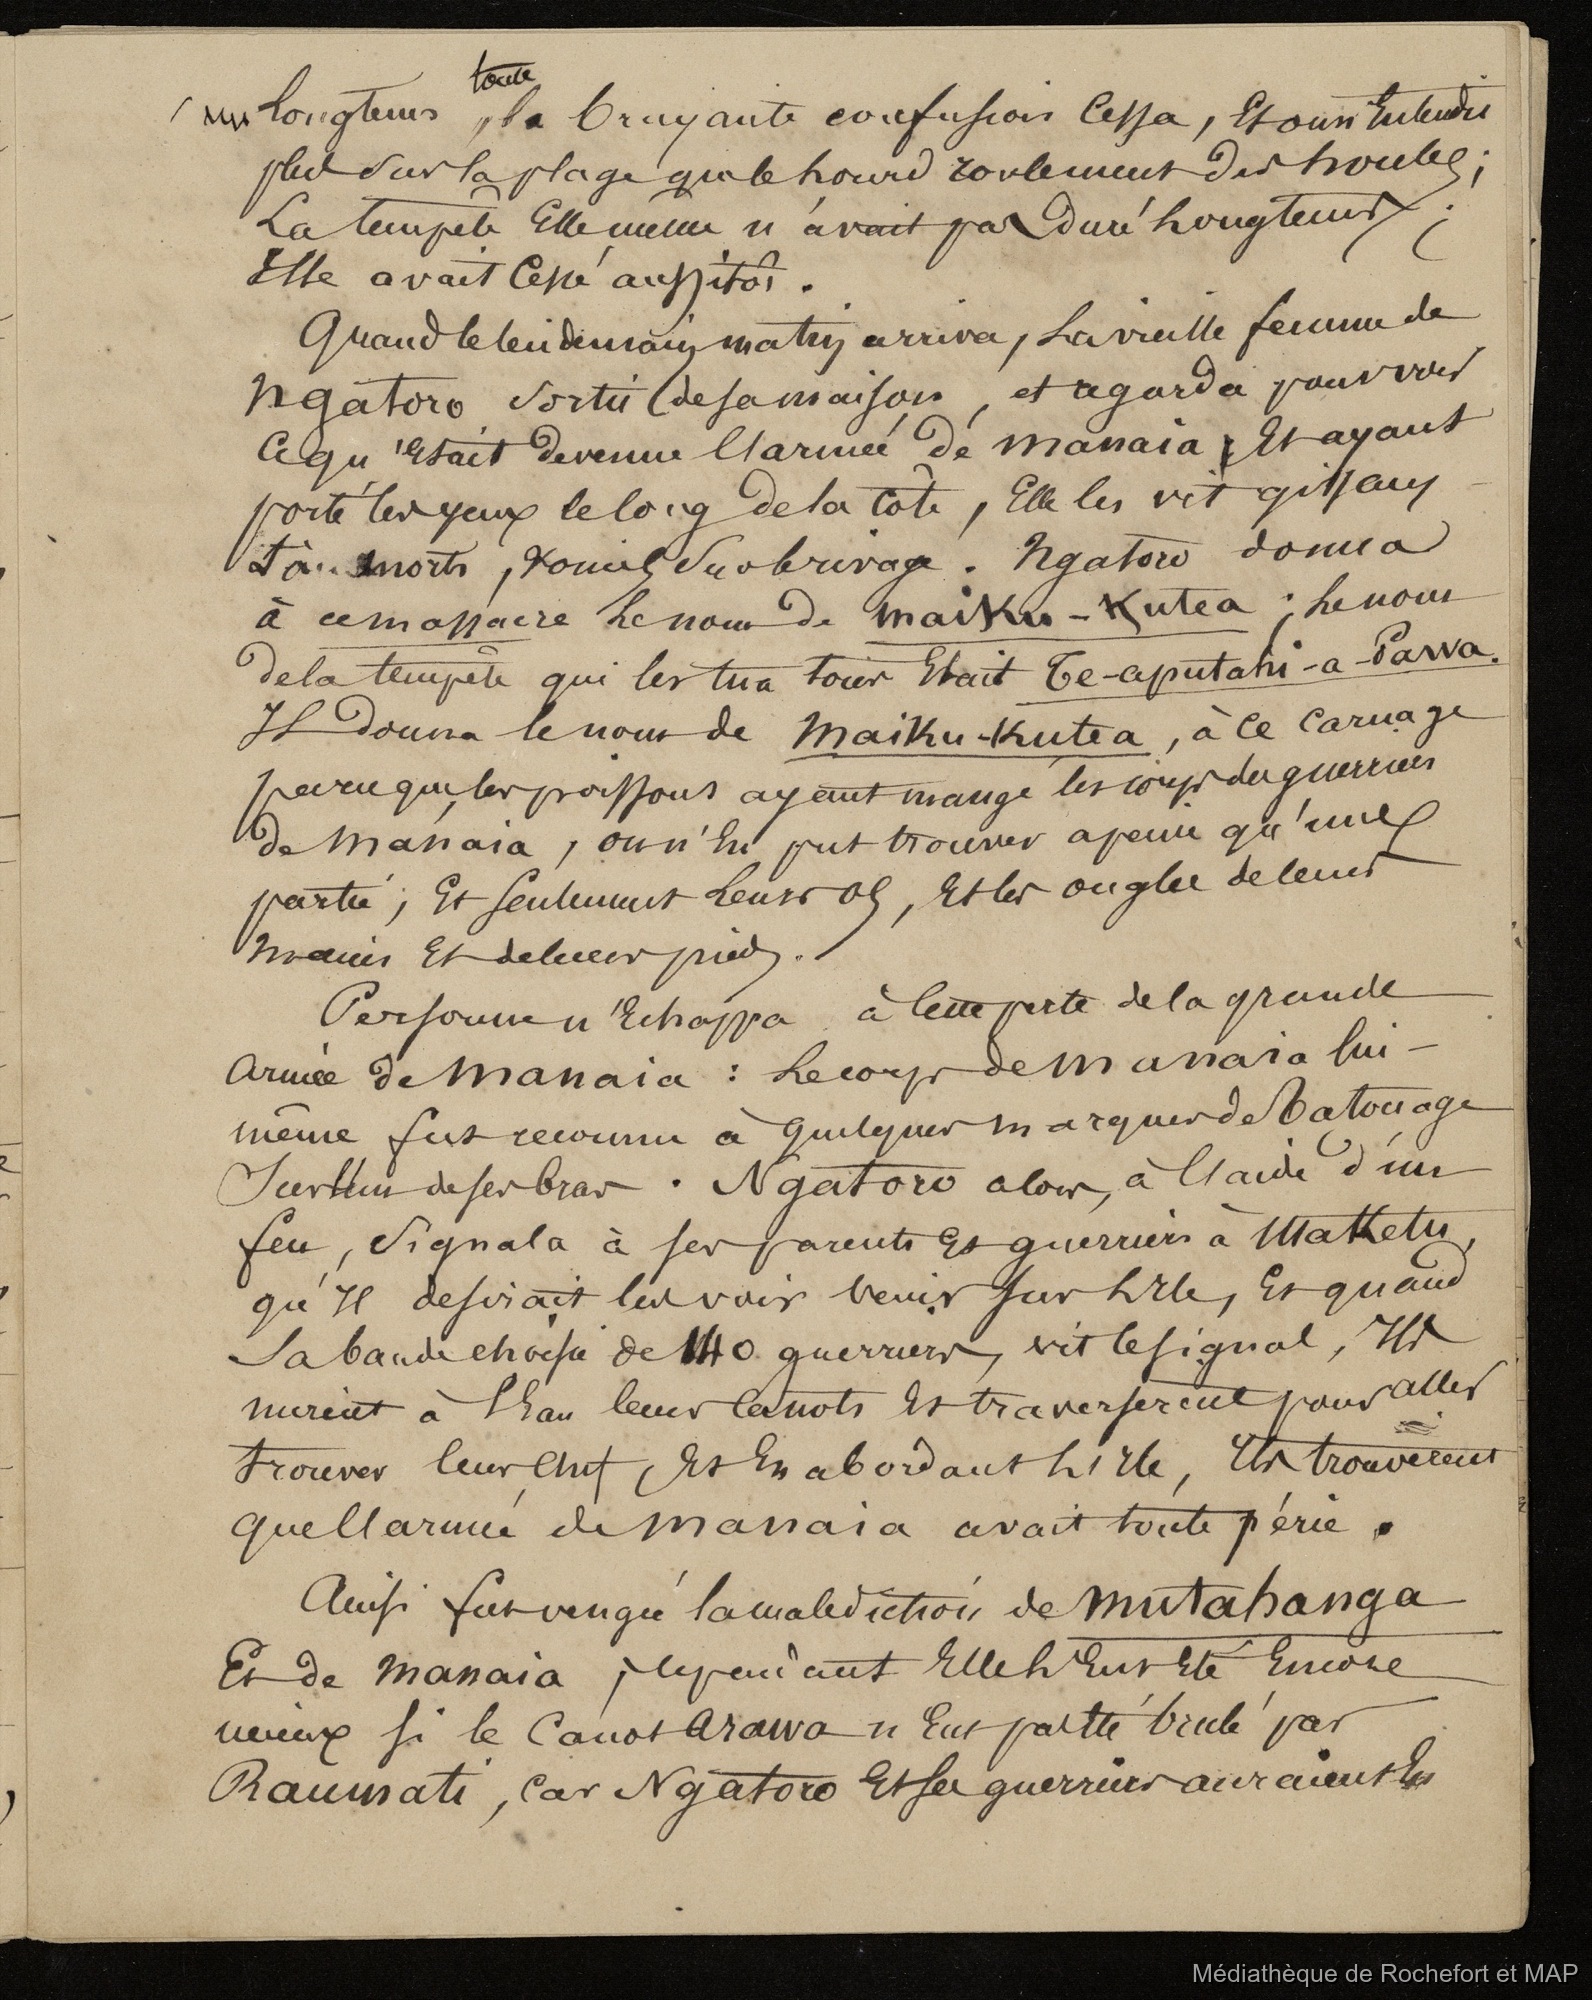 toute
longtems, la bruyante confusion cessa, Et on n'Entendit
plus sur la plage que le lourd roulement des houles;
La tempête Elle même n'avait pas duré longtems;
Elle avait Cessé aussitôt.
Quand le lendemain matin arriva, la vieille femme de
Ngatoro sortit de sa maison, et regarda pour voir
Ce qu'Etait devenue l'armée de Manaia; Et ayant
porté les yeux le long de la côte, Elle les vit gissans
morts, vomis sur le rivage. Ngatoro donna
à ce massacre le nom de Maiku-Kutea; le nom
de la tempête qui les tua tous Etait Te-aputahi-a-Pawa.
Il donna le nom de Maiku-Kutea, à ce carnage
parceque les poissons ayant mangé les corps des guerriers
de Manaia, on n'En put trouver a peine qu'une
partie, Et seulement leurs os, Et les ongles de leurs
mains Et de leurs pieds.
Personne n'Echappa à cette perte de la grande
armée de Manaia : le corps de Manaia lui-
même fut reconnu à quelques marques de tatouage
sur l'un de ses bras. Ngatoro alors, à l'aide d'un
feu, signala à ses parents Et guerriers à Maketu,
qu'Il desirait les voir venir sur l'Ile, Et quand
la bande choisie de 140 guerriers, vit le signal, Ils
mirent à l'Eau leurs canots Et traverserent pour aller
trouver leur chef, Et En abordant l'Ile, Ils trouverent
que l'armée de Manaia avait toute périe.
Ainsi fut vengée la malediction de Mutahanga
Et de Manaia; cependant Elle l'Eut Eté Encore
mieux si le Canot Arawa n'Eut pas été brulé par
Raumati, car Ngatoro Et ses guerriers auraient En
Médiathèque de Rochefort et MAP